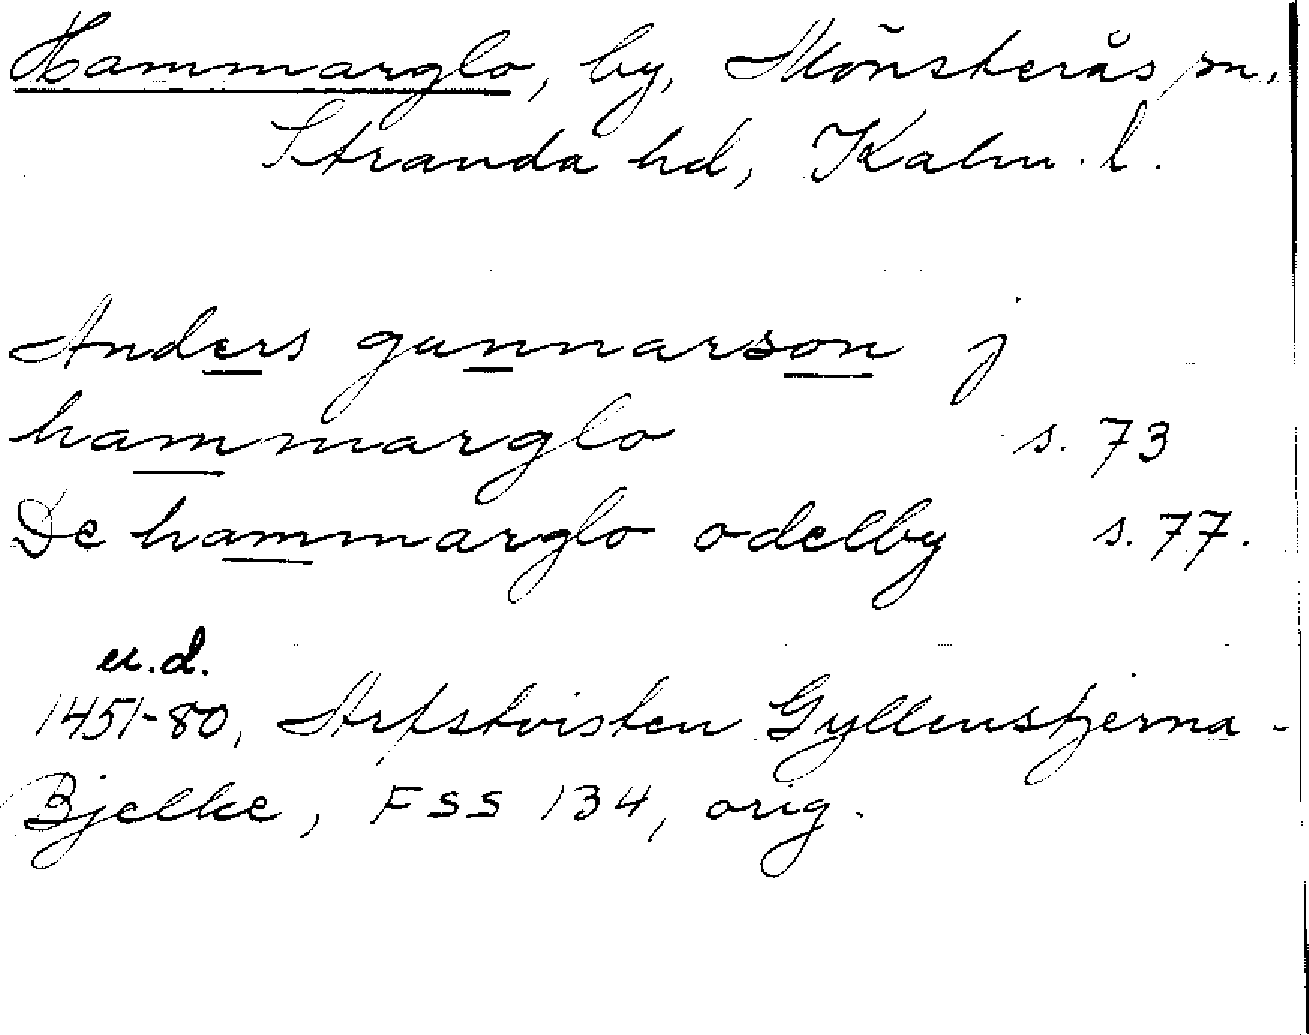 Hammarglo, by, Mönsterås sn,
Stranda hd, Kalm. l.
Anders gunnarson j
hammarglo s. 73
De hammarglo odelby s. 77.
u.d.
1451-80, Arfstvisten Gyllenstjerna -
Bjelke, FSS 134, orig.